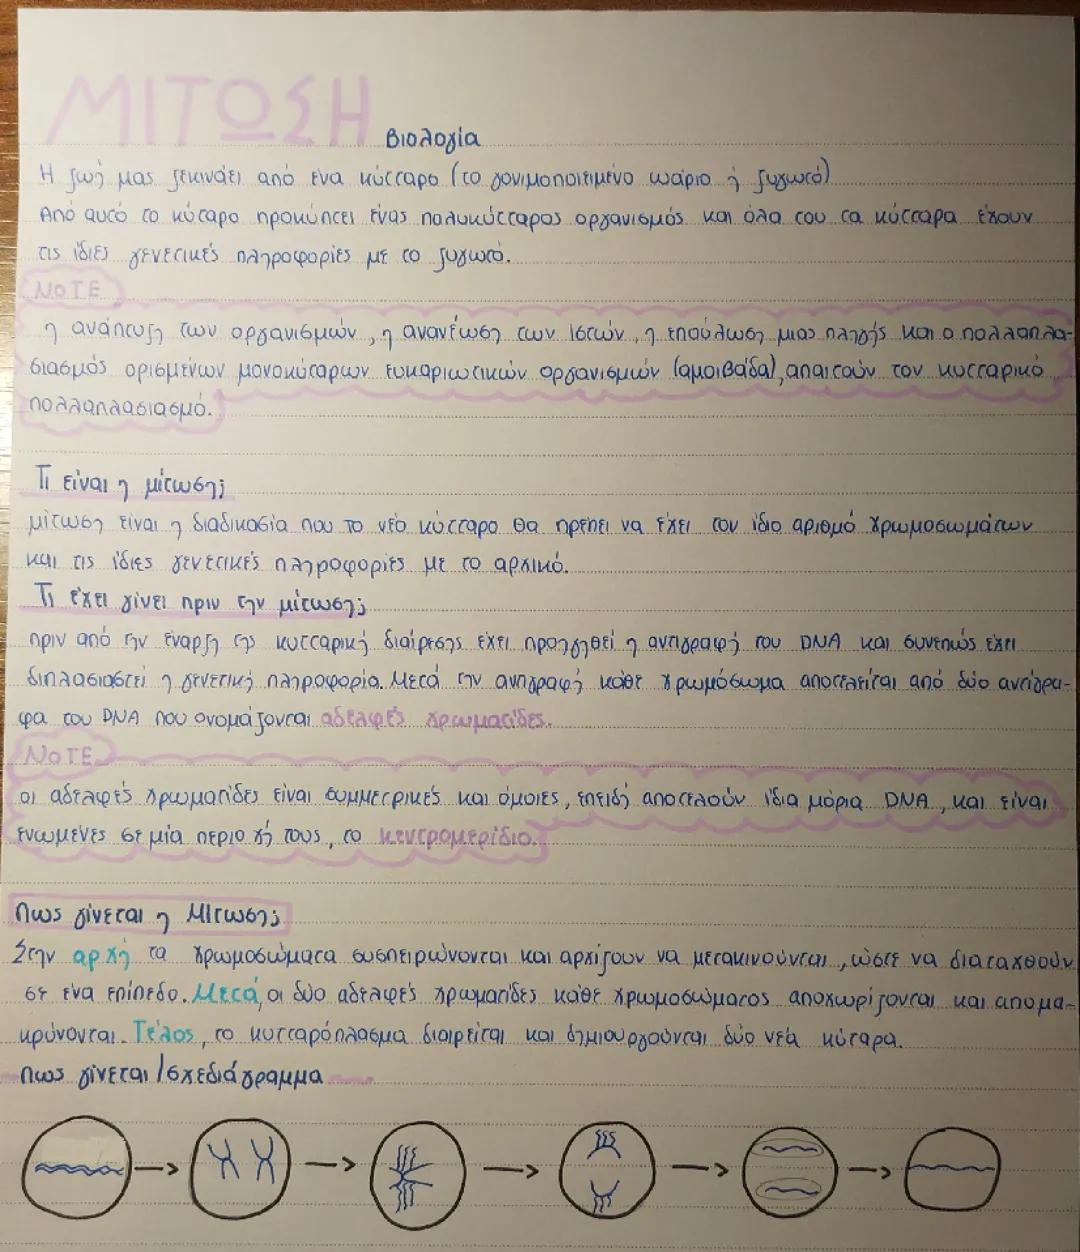 ΜΙΤΩΣΗ
Βιολογία
Η ζωή μας ξεκινάει από ένα κύτταρο (το γονιμοποιειμένο ωάριο ή ζυγωτό)
Από αυτό το κύταρο προκύπτει ένας πολυκύτταρος οργανισμός και όλα του τα κύτταρα έχουν
τις ίδιες γενετικές πληροφορίες με το ζυγωτό.
NOTE
η ανάπτυξη των οργανισμών, η ανανέωση των ιστών, η επούλωση μιας πληγής και ο πολλαπλα-
σιασμός ορισμένων μονοκύταρων ευκαριωτικών οργανισμών (αμοιβάδα), απαιτούν τον κυτταρικό
πολλαπλασιασμό.
Τι είναι η μίτωση;
μίτωση είναι η διαδικασία που το νέο κύτταρο θα πρέπει να έχει τον ίδιο αριθμό χρωμοσωμάτων
και τις ίδιες γενετικές πληροφορίες με το αρχικό.
Τι έχει γίνει πριν την μίτωση;
πριν από την έναρξη της κυτταρική διαίρεσης έχει προηγηθεί η αντιγραφή του DNA και συνεπώς έχει
διπλασιαστεί η γενετική πληροφορία. Μετά την αντιγραφή κάθε χρωμόσωμα αποτελείται από δύο αντίγρα-
φα του DNA που ονομάζονται αδελφές χρωματίδες.
NOTE
οι αδελφές χρωματίδες είναι συμμετρικές και όμοιες, επειδή αποτελούν ίδια μόρια DNA, και είναι
ενωμένες σε μία περιοχή τους, το κεντρομερίδιο.
Πως γίνεται η Μίτωση;
Στην αρχή τα χρωμοσώματα συσπειρώνονται και αρχίζουν να μετακινούνται, ώστε να διαταχθούν
σε ένα επίπεδο. Μετά, οι δύο αδελφές χρωματίδες κάθε χρωμοσώματος αποχωρίζονται και απομα-
κρύνονται. Τέλος, το κυτταρόπλασμα διαιρείται και δημιουργούνται δύο νέα κύταρα.
Πως γίνεται/σχεδιάγραμμα